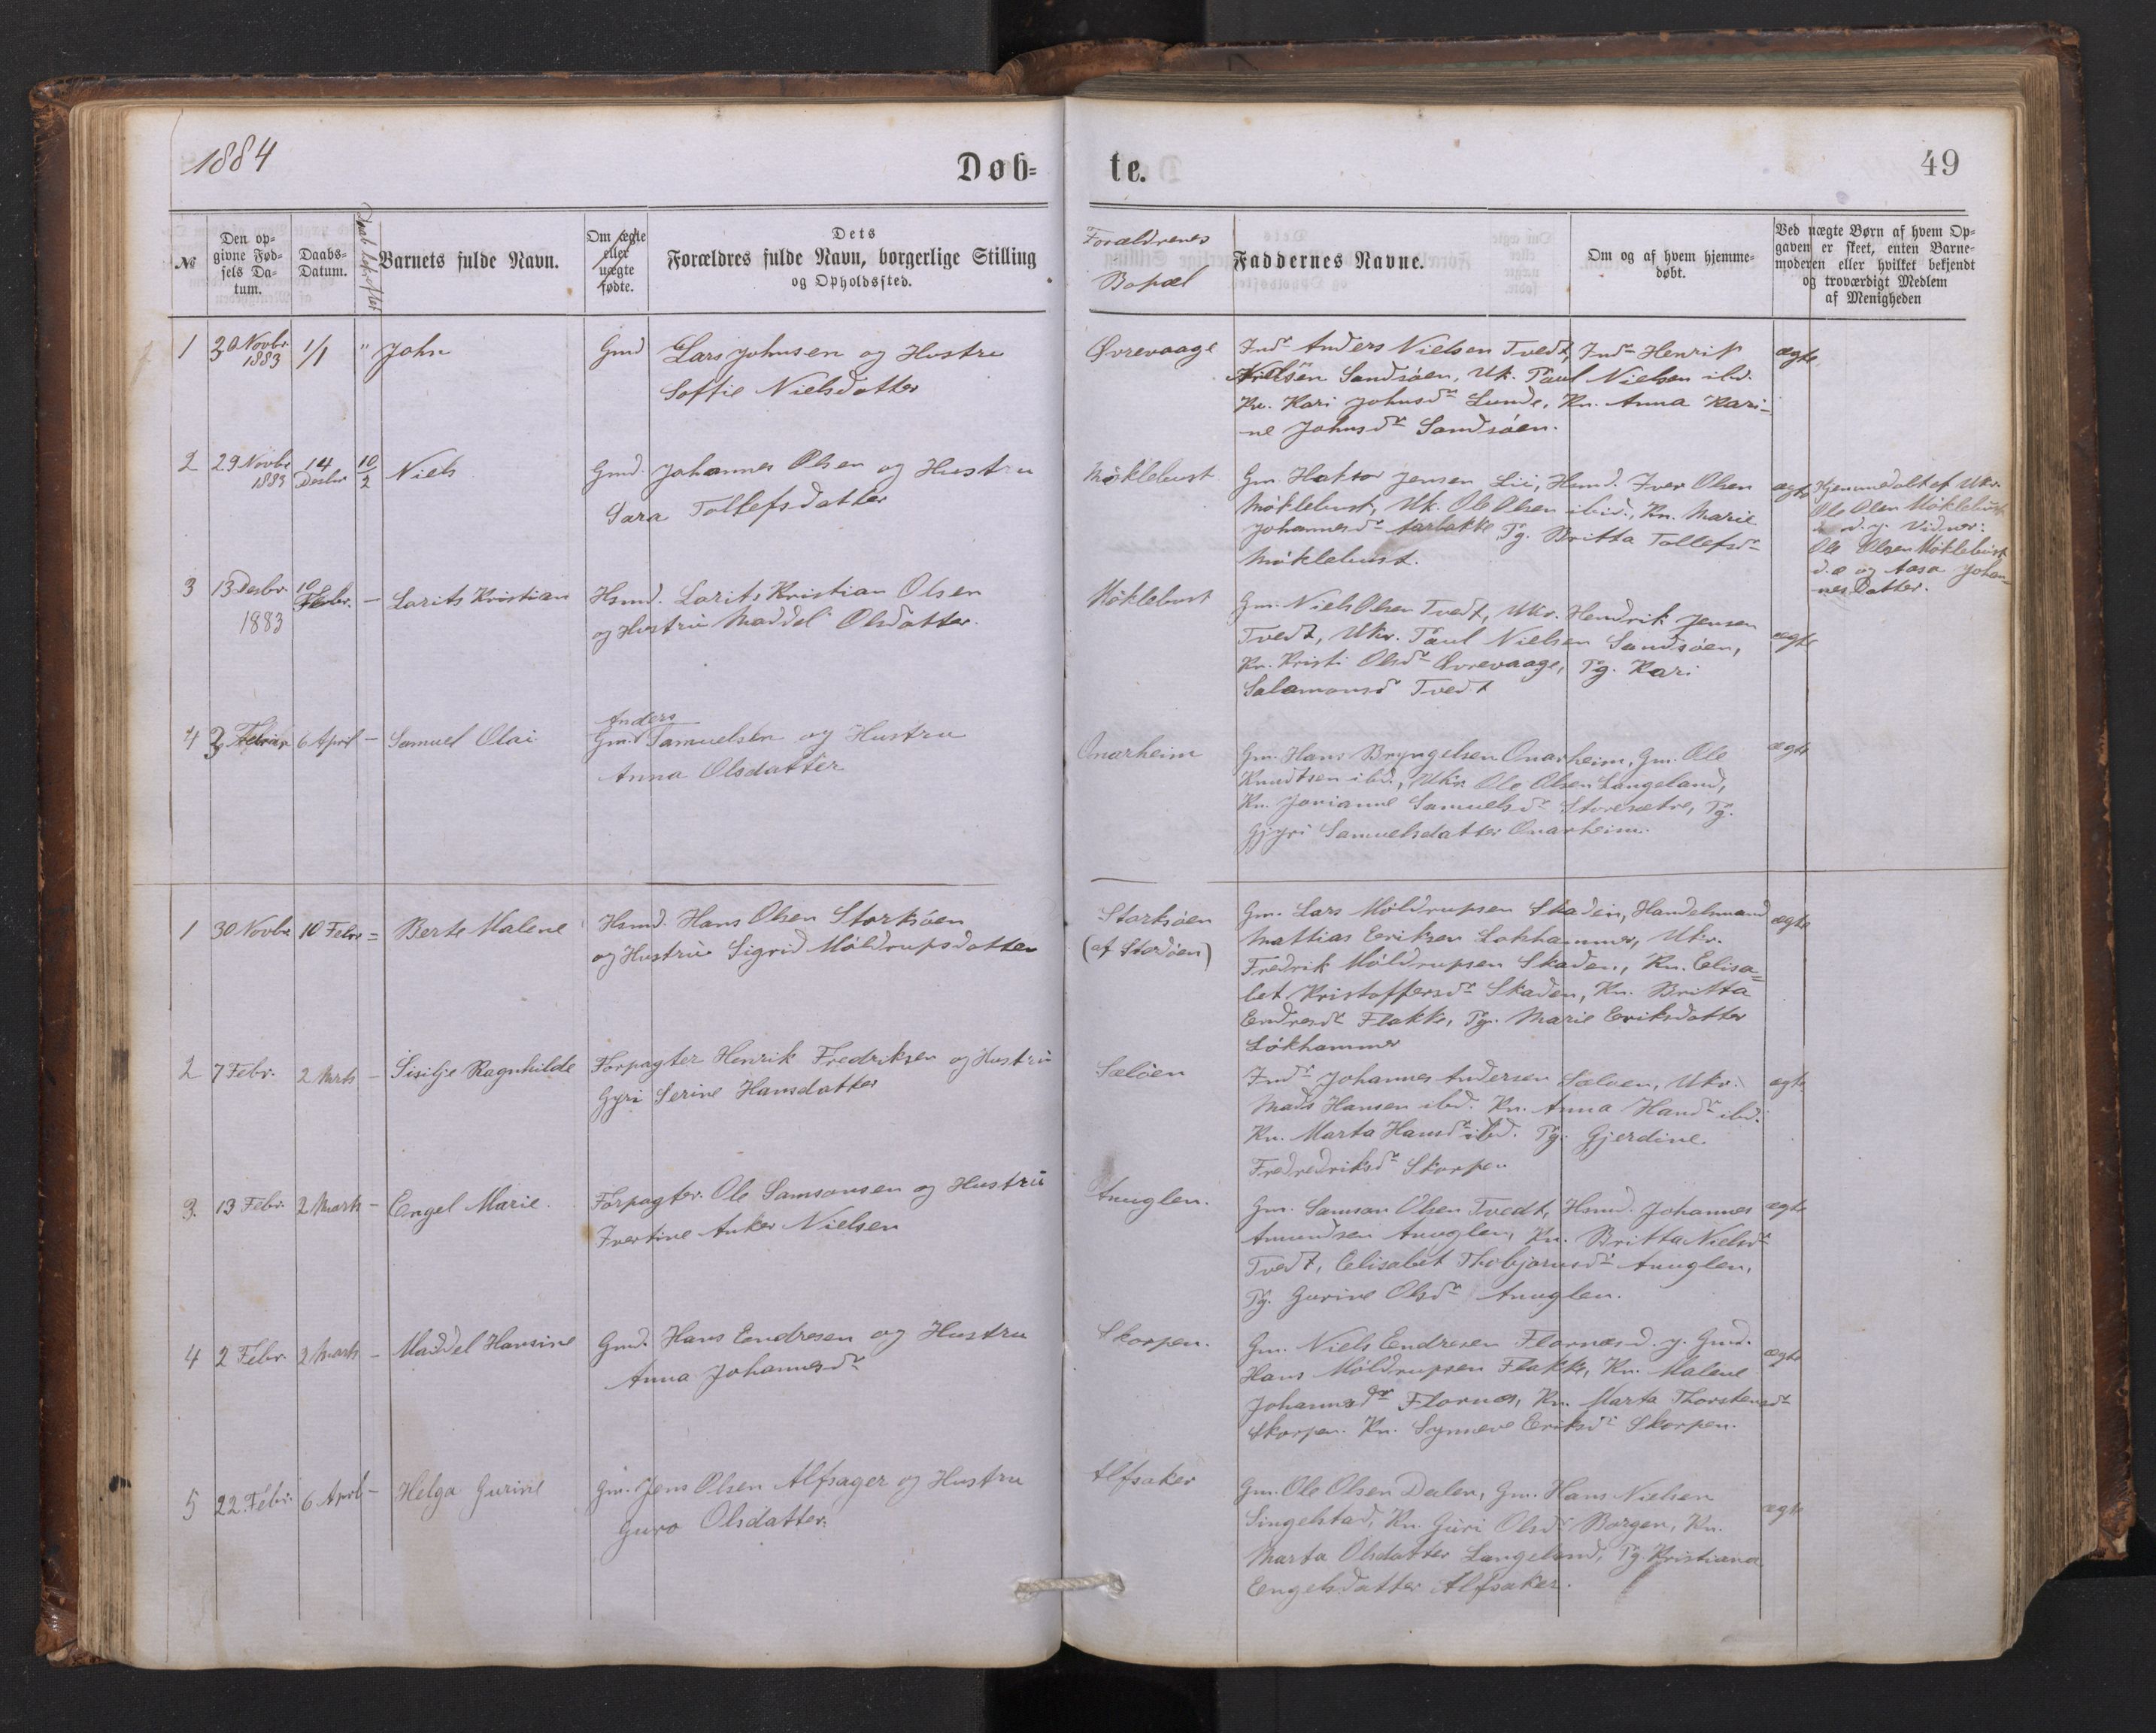 1884
Døb=
te.
49
№
Den op-
givne Fød-
sels Da-
tum.
Daabs-
Datum.
Barnets fulde Navn.
Om ægte
eller
uægte
fødte.
Dets
Forældres fulde Navn, borgerlige Stilling
og Opholdssted.
Forældrenes
Bopæl
Faddernes Navne.
Om og af hvem hjemme-
døbt.
Ved uægte Børn af hvem Op-
gaven er skeet, enten Barne-
moderen eller hvilket bekjendt
og troværdigt Medlem
af Menigheden
1 30 Novbr. 1883 1/1 " John Gmd Lars Johnsen og Hustru
Soffie Nielsdatter
Øvrevaage
Indr Anders Nielsen Tvedt, Indr Henrik
Nielsen Sandsöen, Uk. Paul Nielsen ibd.
Kn. Kari Johnsdr Lunde, Kn. Anna Kari-
ne Johnsdr Sandsöen.
ægte
2 29 Novbr 1883 14 Desbr 10/2 Niels Gmd. Johannes Olsen og Hustru
Sara Tollefsdatter
Möklebust
Gm. Haktor Jensen Lie, Hsmd. Iver Olsen
Möklebust, Uk. Ole Olsen ibid., Kn. Marie
Johannesdr Aarbakke, Pg. Britta Tollefsdr
Möklebust.
ægte
Hjemmedøbt af Ukr.
Ole Olsen Möklebust
d. y. Vidner:
Ole Olsen Möklebust
d. æ og Aasa Johan
nes Datter.
3 13 Desbr. 1883 10 Febr. – Larits Kristian Hsmd. Larits Kristian Olsen
og Hustru Maddel Olsdatter.
Möklebust
Gm. Niels Olsen Tvedt, Ukr. Hendrik Jensen
Tvedt, Ukr. Paul Nielsen Sandsöen,
Kn. Kristi Olsdr Øvrevaage, Pg. Kari
Salamonsdr Tvedt
ægte
4 3 Februar 6 April – Samuel Olai Gmd Anders Samuelsen og Hustru
Anna Olsdatter
Onarheim
Gm. Hans Bryngelsen Onarheim, Gm. Ole
Knudtsen ibd., Ukr. Ole Olsen Langeland,
Kn. Jorianne Samuelsdr Storesætre, Pg.
Gjyri Samuelsdatter Onarheim.
ægte
1 30 Novbr. 10 Febr = Berte Malene Hsmd. Hans Olsen Storksöen
og Hustru Sigrid Möldrupsdatter
Storksöen
(af Stordöen)
Gm. Lars Möldrupsen Skaden, Handelsmand
Mattias Eriksen Lokhammer, Ukr.
Fredrik Möldrupsen Skaden, Kn. Elisa=
bet Kristoffersdr Skaden, Kn. Britta
Endresdr Flakke, Pg. Marie Eriksdatter
Lökhammer
ægte
2 7 Febr. 2 Marts – Sisilje Ragnhilde Forpagter Henrik Fredriksen og Hustru
Gyri Serine Hansdatter
Selöen
Indr Johannes Andersen Sæløen, Ukr.
Mads Hansen ibd. Kn. Anna Handr ibd.
Kn. Marta Hansdr ibd. Pg. Gjerdine
Fredredriksdr Skorpen
ægte
3. 13 Febr. 2 Marts – Engel Marie. Forpagter. Ole Samsonsen og Hustru
Ivertine Anker Nielsen
Anuglen.
Gm. Samson Olsen Tvedt, Hsmd. Johannes
Amundsen Anuglen, Kn. Britta Nielsdr
Tvedt, Elisabet Thobjørnsdr Anuglen,
Pg. Gurine Olsdr Anuglen.
ægte
4 2 Febr. 2 Marts – Maddel Hansine Gmd. Hans Endresen og Hustru
Anna Johannesdr
Skorpen.
Gm. Niels Endresen Flornes d. y. Gmd.
Hans Möldrupsen Flakke, Kn. Malene
Johannesdr Flornæs, Kn. Marta Thorstensdr
Skorpen. Kn. Synneve Eriksdr Skorpen.
ægte
5 22. Febr. 6 April – Helga Gurine Gm. Jens Olsen Alfsager og Hustru
Guro Olsdatter.
Alfsaker
Gm. Ole Olsen Dalen, Gm. Hans Nielsen
Singelstad, Kn. Guri Olsdr Borgen, Kn.
Marta Olsdatter Langeland, Pg. Kristiana
Engelsdatter Alfsaker.
ægte